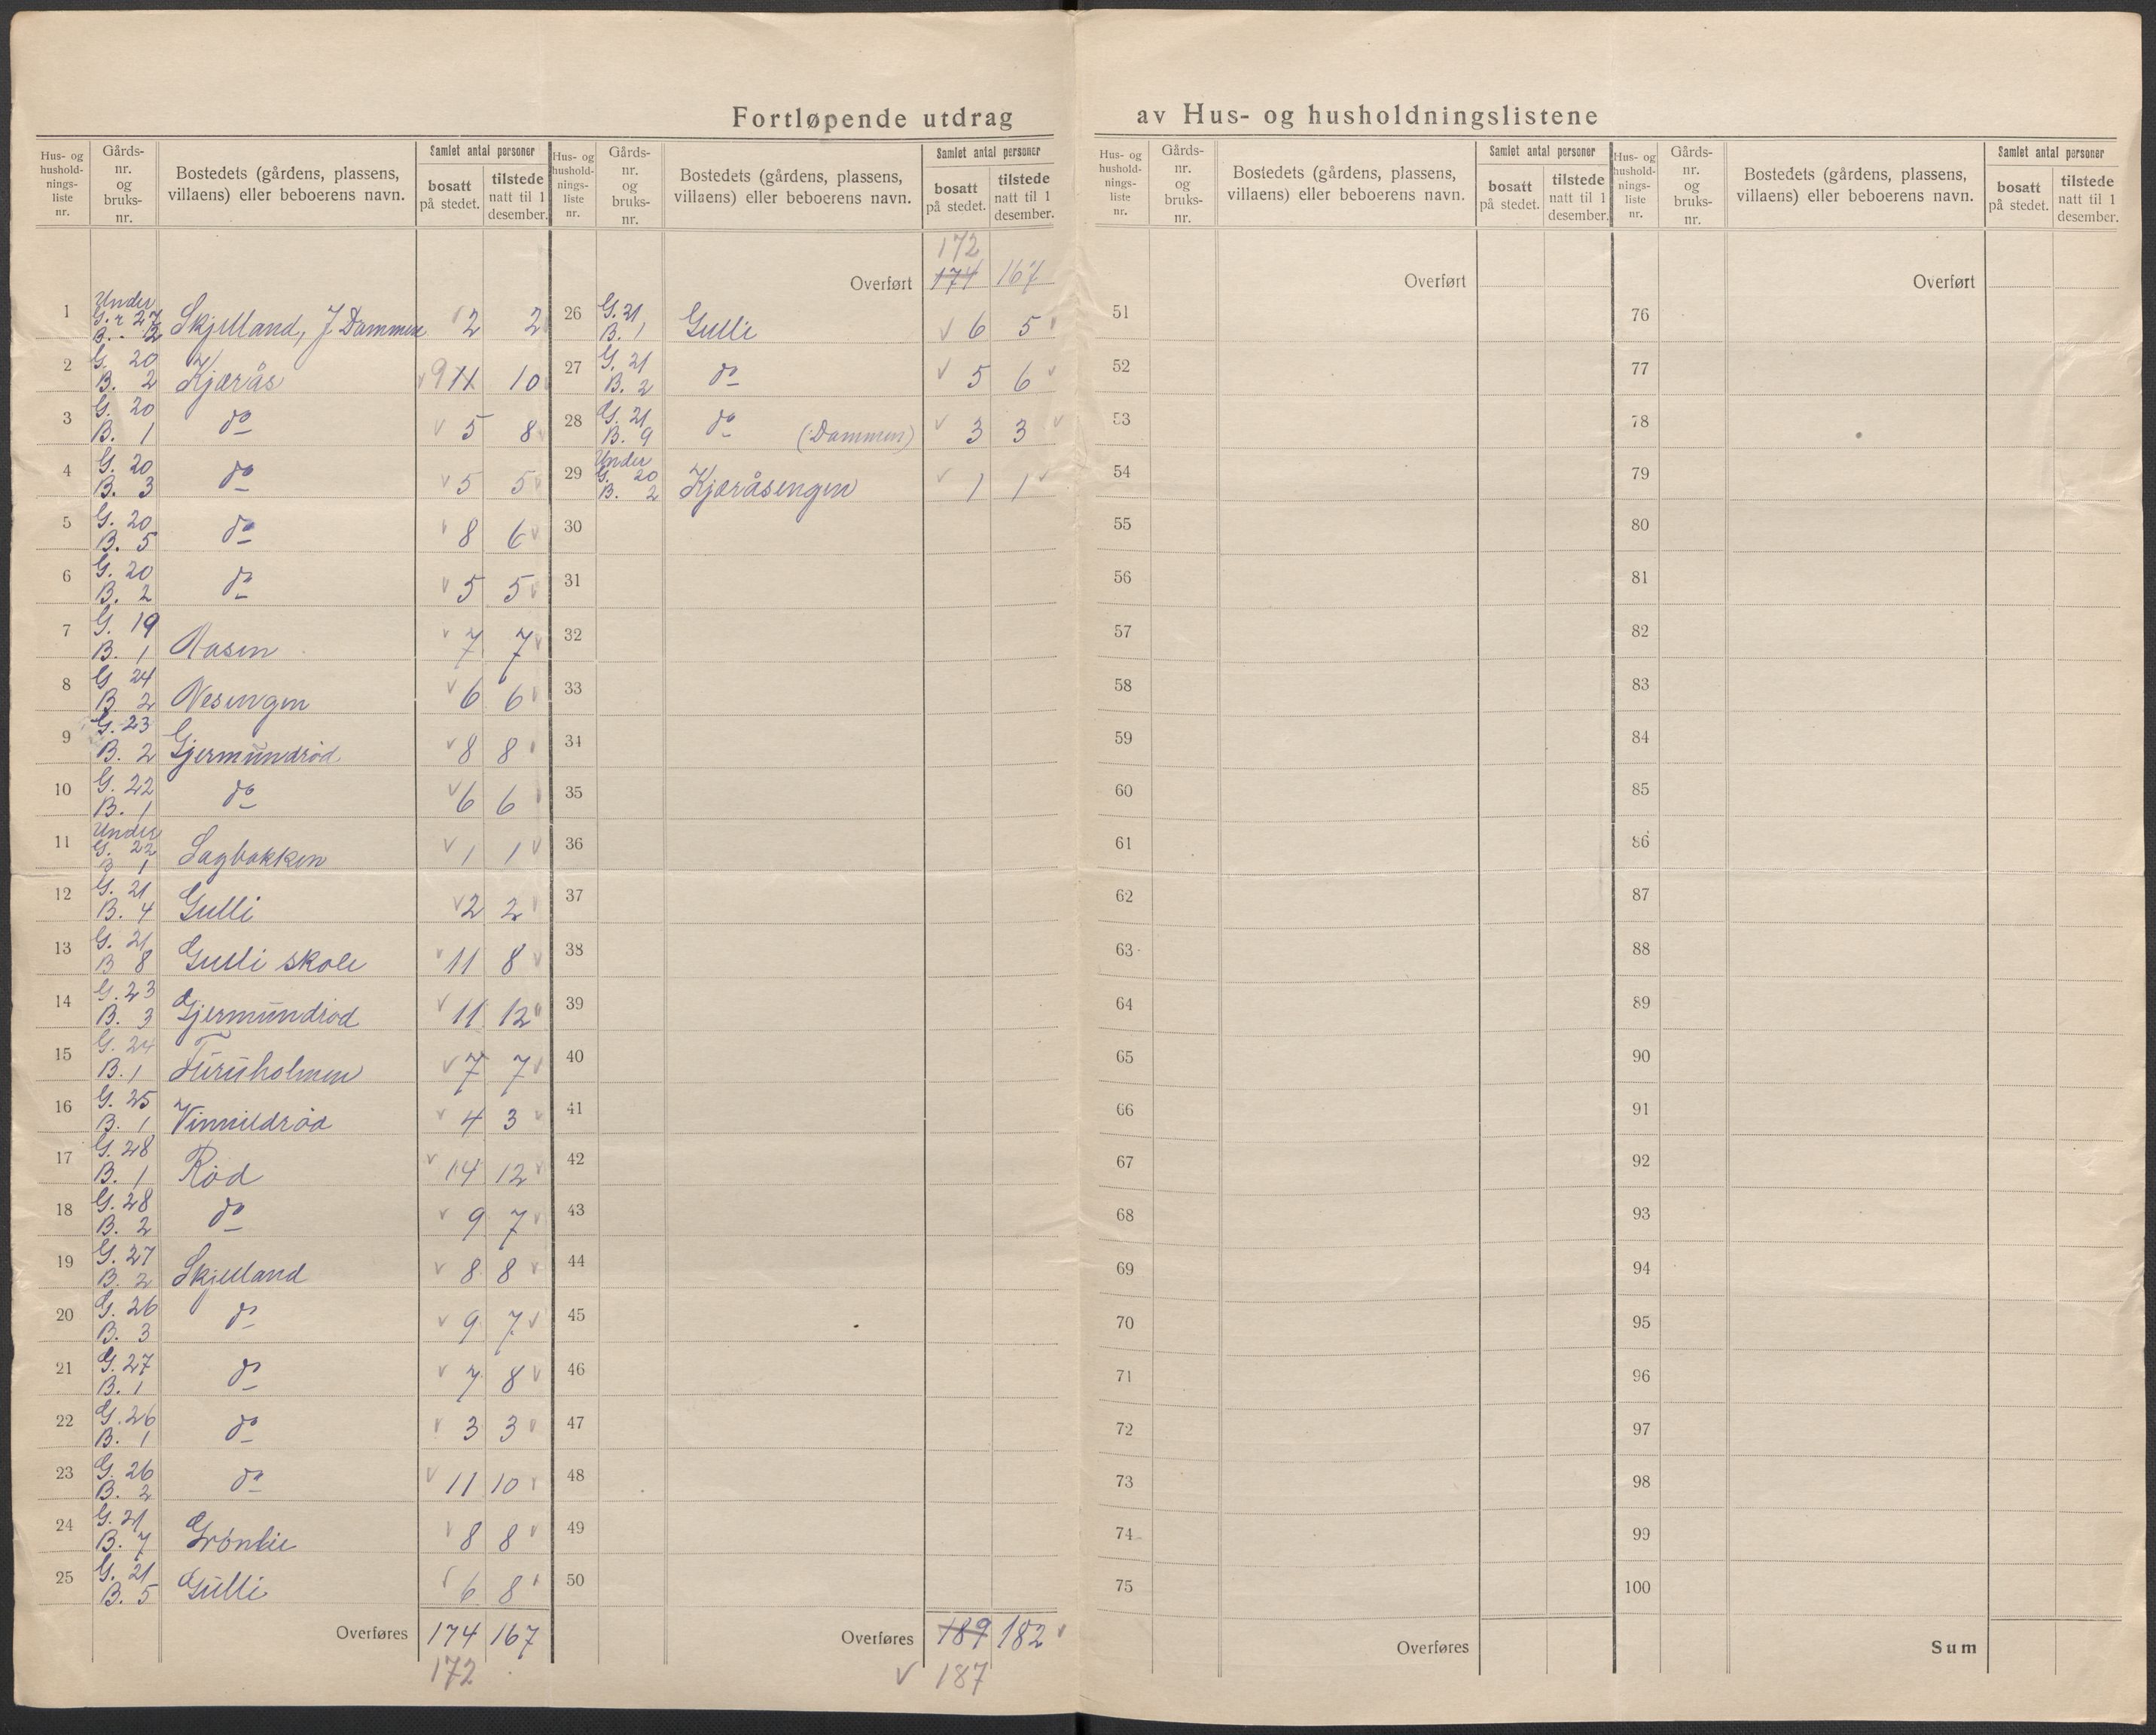 Fortløpende utdrag av Hus- og husholdningslistene
Hus- og hushold-nings-liste nr. Gårds-nr. og bruks-nr. Bostedets (gårdens, plassens, villaens) eller beboerens navn. Samlet antal personer bosatt på stedet. tilstede natt til 1 desember.
1 Under G.nr 27 B. 2 Skjelland, J Dammen 2 2
2 G. 20 B. 2 Kjærås 9 11 10
3 G. 20 B. 1 do 5 8
4 G. 20 B. 3 do 5 5
5 G. 20 B. 5 do 8 6
6 G. 20 B. 2 do 5 5
7 G. 19 B. 1 Aasen 7 7
8 G 24 B. 2 Nesengen 6 6
9 G. 23 B. 2 Gjermundrød 8 8
10 G. 22 B. 1 do 6 6
11 Under G. 22 B 1 Sagbakken 1 1
12 G. 21 B. 4 Gulli 2 2
13 G. 21 B 8 Gulli skole 11 8
14 G. 23 B. 3 Gjermundrød 11 12
15 G. 24 B. 1 Furuholmen 7 7
16 G. 25 B. 1 Vinnildrød 4 3
17 G. 28 B. 1 Rød 14 12
18 G. 28 B. 2 do 9 7
19 G. 27 B. 2 Skjelland 8 8
20 G. 26 B. 3 do 9 7
21 G. 27 B. 1 do 7 8
22 G. 26 B. 1 do 3 3
23 G. 26 B. 2 do 11 10
24 G. 21 B. 7 Grønlie 8 8
25 G. 21 B. 5 Gulli 6 8
Overføres 174 167
172
Hus- og hushold-nings-liste nr. Gårds-nr. og bruks-nr. Bostedets (gårdens, plassens, villaens) eller beboerens navn. Samlet antal personer bosatt på stedet. tilstede natt til 1 desember.
172
Overført 174 167
26 G. 21 B. 1 Gulli 6 5
27 G. 21 B. 2 do 5 6
28 G. 21 B. 9 do (Dammen) 3 3
29 Under G. 20 B. 2 Kjæråsengen 1 1
30
31
32
33
34
35
36
37
38
39
40
41
42
43
44
45
46
47
48
49
50
Overføres 189 182
187
Hus- og hushold-nings-liste nr. Gårds-nr. og bruks-nr. Bostedets (gårdens, plassens, villaens) eller beboerens navn. Samlet antal personer bosatt på stedet. tilstede natt til 1 desember.
Overført
51
52
53
54
55
56
57
58
59
60
61
62
63
64
65
66
67
68
69
70
71
72
73
74
75
Overføres
Hus- og hushold-nings-liste nr. Gårds-nr. og bruks-nr. Bostedets (gårdens, plassens, villaens) eller beboerens navn. Samlet antal personer bosatt på stedet. tilstede natt til 1 desember.
Overført
76
77
78
79
80
81
82
83
84
85
86
87
88
89
90
91
92
93
94
95
96
97
98
99
100
Sum